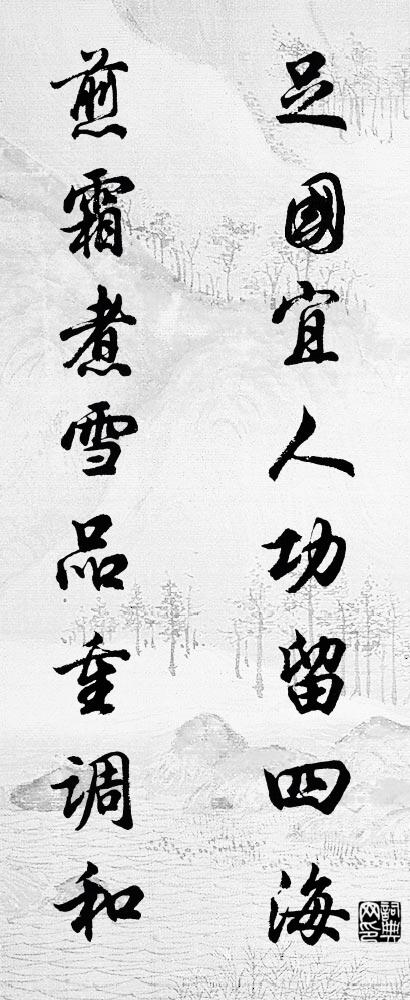 足國宜人功留四海
煎霜煮雪品重调和
詞典网印